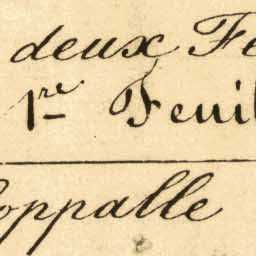 deux Fe
1re Feuil
oppalle